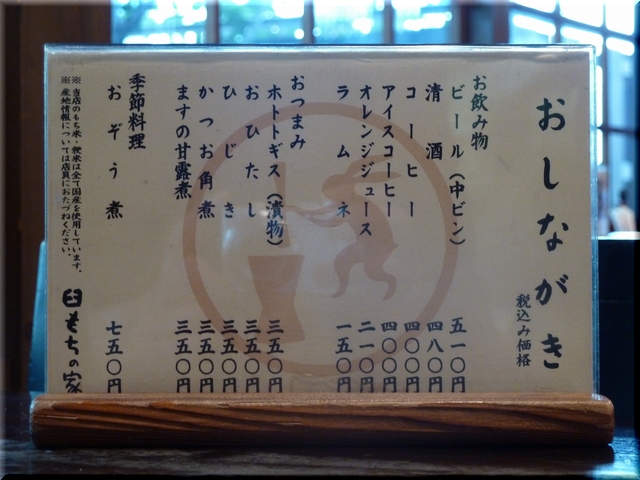 おしながき
税込み価格
お飲み物
ビール（中ビン） 五一〇円
清酒 四八〇円
コーヒー 四〇〇円
アイスコーヒー 四〇〇円
オレンジジュース 二一〇円
ラムネ 一五〇円
おつまみ
ホトトギス（漬物） 三五〇円
おひたし 三五〇円
ひじき 三五〇円
かつお角煮 三五〇円
ますの甘露煮 三五〇円
季節料理
おぞう煮 七五〇円
※当店のもち米・粳米は全て国産を使用しています。
※産地情報については店員におたづねください。
臼もちの家